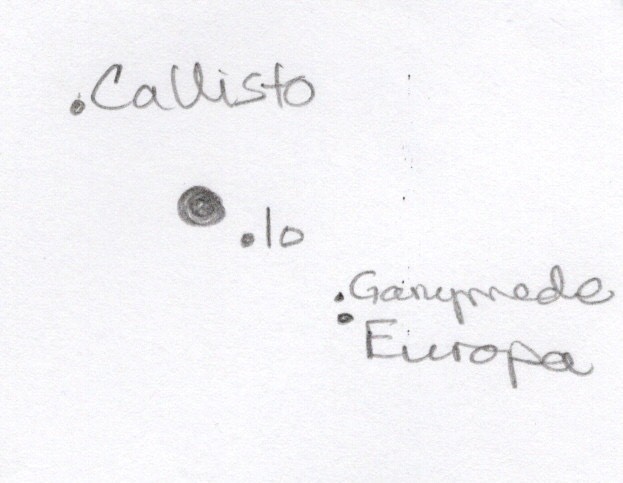 Callisto
Io
Ganymede
Europa